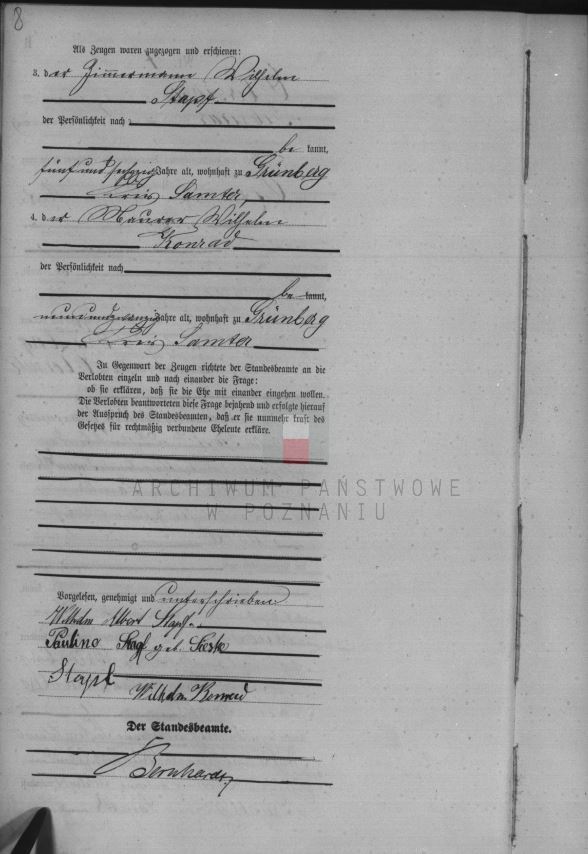 8
Als Zeugen waren zugezogen und erschienen:
3. der Zimmermann Wilhelm
Stapf
der Persönlichkeit nach
be kannt,
fünf und sechzig Jahre alt, wohnhaft zu Grünberg
Kreis Samter,
4. der Maurer Wilhelm
Konrad
der Persönlichkeit nach
be kannt,
neunundzwanzig Jahre alt, wohnhaft zu Grünberg
Kreis Samter
In Gegenwart der Zeugen richtete der Standesbeamte an die
Verlobten einzeln und nach einander die Frage:
ob sie erklären, daß sie die Ehe mit einander eingehen wollen.
Die Verlobten beantworteten diese Frage bejahend und erfolgte hierauf
der Ausspruch des Standesbeamten, daß er sie nunmehr kraft des
Gesetzes für rechtmäßig verbundene Eheleute erkläre.
ARCHIWUM PAŃSTWOWE
W POZNANIU
Vorgelesen, genehmigt und unterschrieben
Wilhelm Albert Stapf
Pauline Stapf geb.
Stapf
Wilhelm Konrad
Der Standesbeamte.
Bernhardt